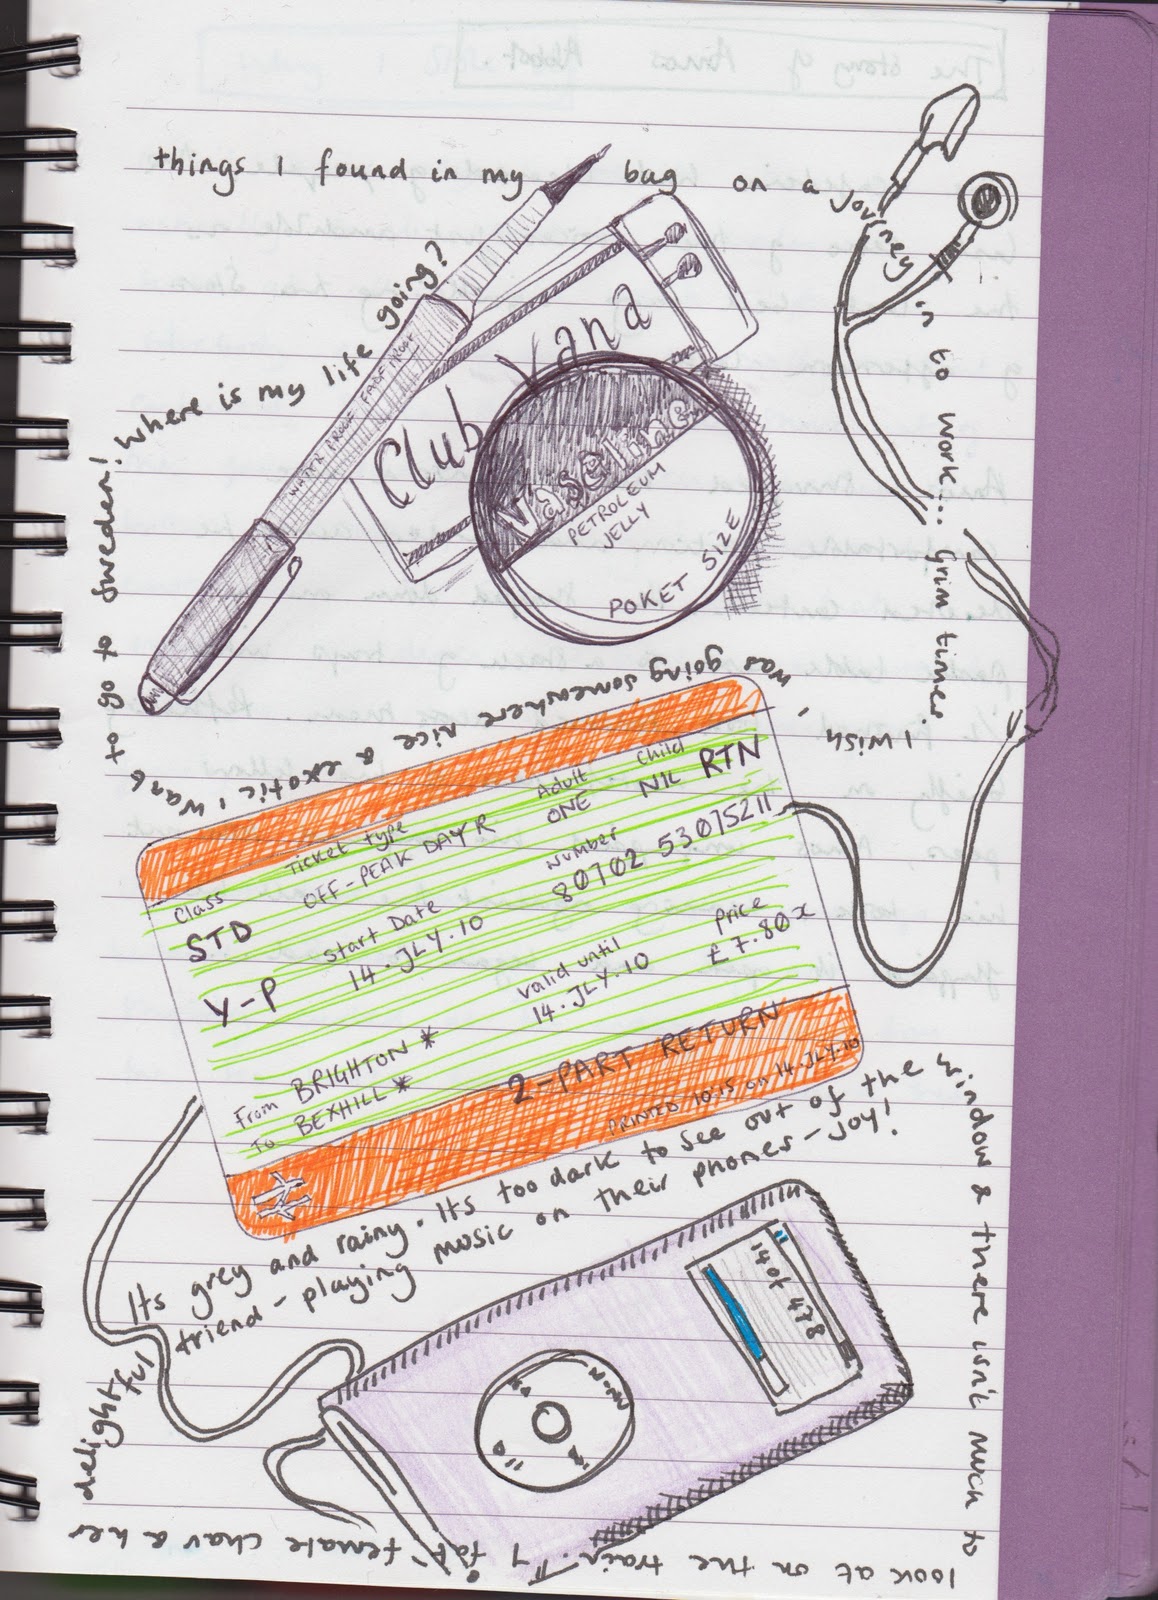 things I found in my bag on a journey in to work... Grim times. I wish I was going somewhere nice & exotic. I want to go to sweden! Where is my life going?
WATER PROOF FADE PROOF
Club Vana
Vaseline
PETROLEUM
JELLY
POKET SIZE
Class
Ticket type
Adult
Child
STD
OFF-PEAK DAY R
ONE
NIL
RTN
Start Date
Number
Y-P
14.JLY.10
80702 53075211
valid until
Price
14.JLY.10
£7.80x
From BRIGHTON *
To BEXHILL *
2-PART RETURN
PRINTED 10:15 on 14.JLY.10
Its grey and rainy. Its too dark to see out fo the window & there isn't much to look at on the train. 1 fat female chav & her delightful friend - playing music on their phones - Joy!
14 of 478